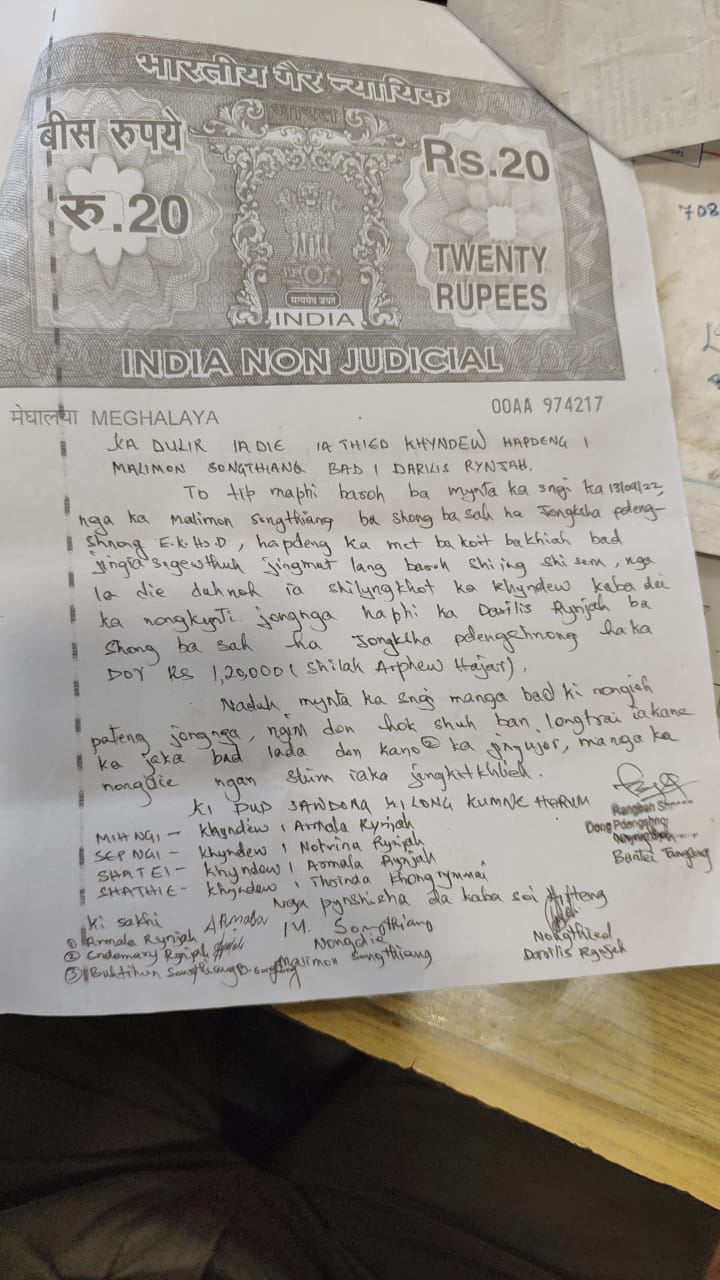 भारतीय गैर न्यायिक
बीस रुपये
रु.20
Rs.20
TWENTY
RUPEES
सत्यमेव जयते
INDIA
INDIA NON JUDICIAL
मेघालया MEGHALAYA
00AA 974217
KA DULIR IADIE IATHIED KHYNDEW HAPDENG I
MALIMON SONGTHIANG BAD I DARILIS RYNJAH.
To tip maphi baroh ba mynta ka sngi ka 13/09/22,
nga ka Malimon Songthiang ba shong ba sah ha Jongksha pdeng-
shnong E.K.H.D, hapdeng ka met ba koit ba khiah bad
jingia sngewthuh jingmut lang baroh shi iing shi sem, nga
la die duh noh ia shilyngkhot ka khyndew kaba dei
ka nongkynti jongnga ha phi ka Darilis Rynjah ba
shong ba sah ha Jongksha pdengshnong haka
DOR Rs 1,20,000 (Shilak Arphew Hajar).
Naduh mynta ka sngi manga bad ki nongïoh
pateng jongnga, ngim don hok shuh ban longtrai iakane
ka jaka bad lada don kano② ka jingujor, manga ka
nongdie ngan shim iaka jingkitkhlieh.
KI PUD SAWDONG KI LONG KUMNE HARUM
MIHNGI - Khyndew i Armala Rynjah
SEPNGI - Khyndew i Notrina Rynjah
SHATEI - Khyndew i Armala Rynjah
SHATHIE - Khyndew i Thrinda Khongrymmai
Rangbah
Dong Pdengshnong
Bantei
Nga pynshisha da kaba soi
Ki sakhi
① Armala Rynjah Armala
② Endemary Rynjah
③ Buktihun Songthiang
M. Songthiang
Nongdie
Malimon Songthiang
Nongthied
Darilis Rynjah
708